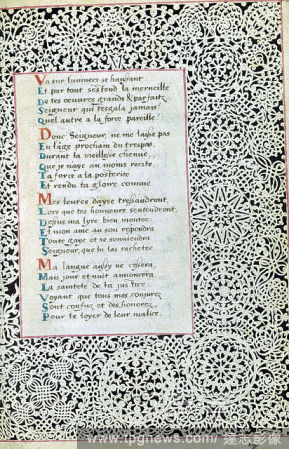 Va sur lunivers se haussant
Et par tout s'estend la merveille
De tes oeuvres grands & parfaitz
Seigneur qui tesgala jamais
Quel autre a la force pareille?
Donc Seigneur, ne me laysse pas
En l'age prochain du trespas
Durant la vieillesse chenue
Que je naye au moins recite
La force a la posterite
Et rendu ta gloire connue
Mes levres d'ayse tressaudront,
Lors que tes honneurs s'entendront,
Dessus ma lyre bien montee
Et mon ame au son repondra
Toute gaye et se souviendra
Seigneur, que tu las rachetee
Ma langue aussy ne cessera,
Mais jour et nuit annoncera
La saintete de ta justice
Voyant que tous mes conjurez
Sont confuz et deshonorez
Pour le loyer de leur malice.
www.tpgnews.com/ 達志影像